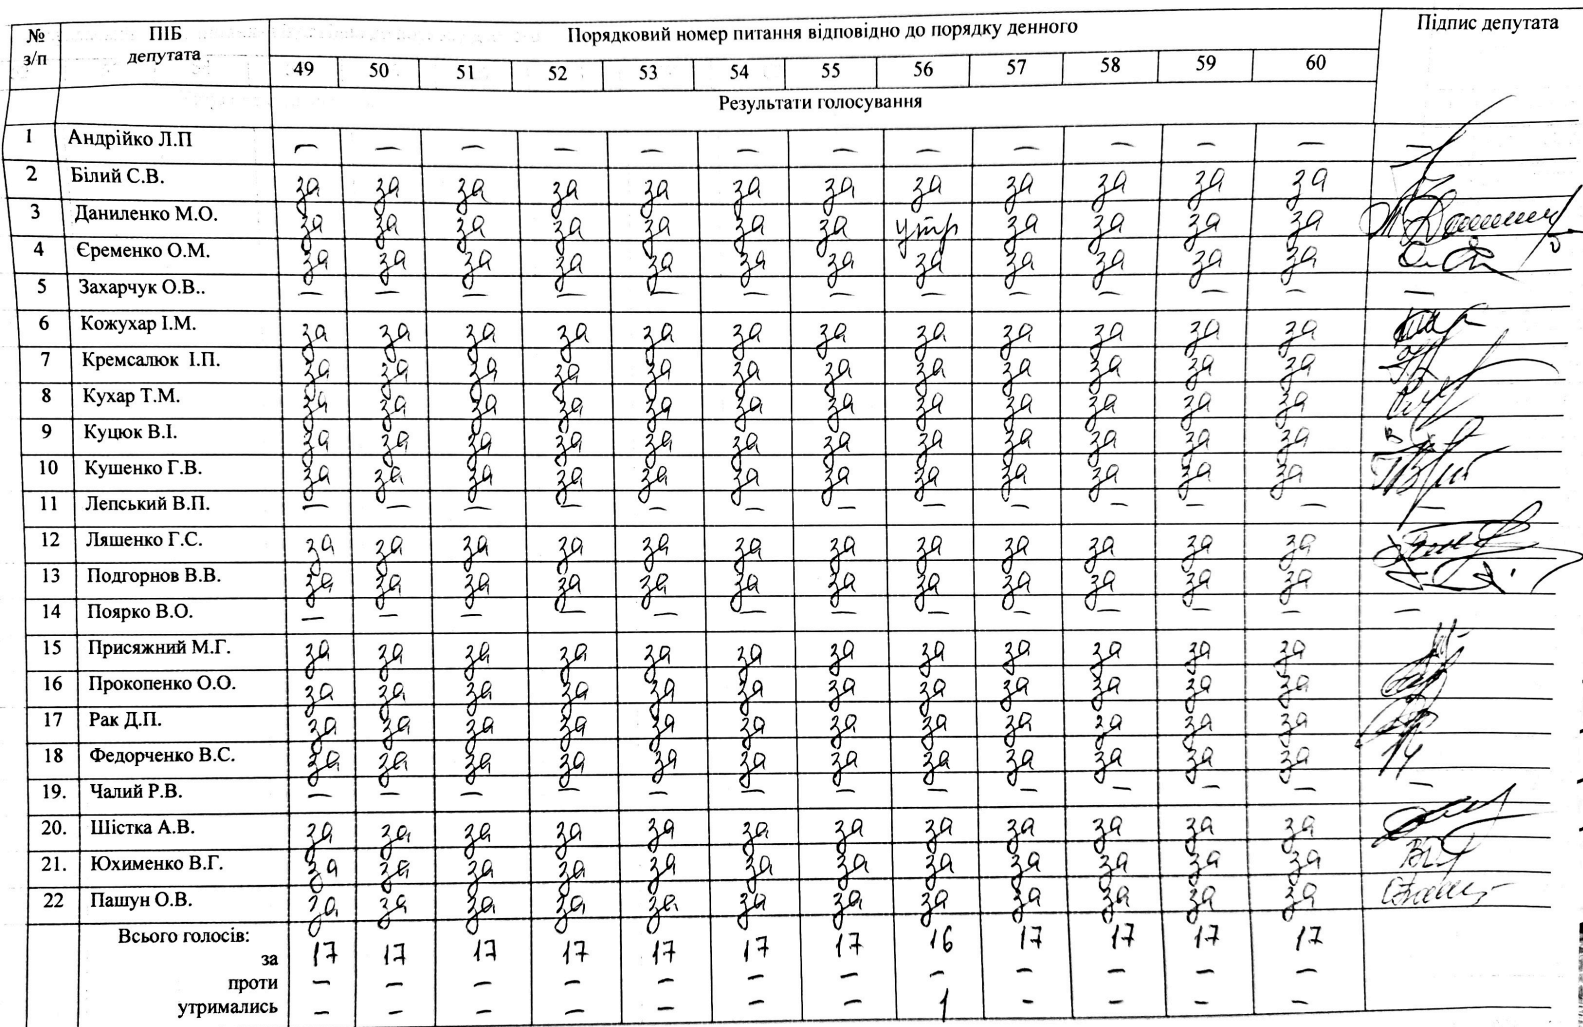 № з/п ПІБ депутата Порядковий номер питання відповідно до порядку денного Підпис депутата
49 50 51 52 53 54 55 56 57 58 59 60
Результати голосування
1 Андрійко Л.П — — — — — — — — — — — — —
2 Білий С.В. за за за за за за за за за за за за
3 Даниленко М.О. за за за за за за за утр за за за за
4 Єременко О.М. за за за за за за за за за за за за
5 Захарчук О.В.. — — — — — — — — — — — — —
6 Кожухар І.М. за за за за за за за за за за за за
7 Кремсалюк І.П. за за за за за за за за за за за за
8 Кухар Т.М. за за за за за за за за за за за за
9 Куцюк В.І. за за за за за за за за за за за за
10 Кушенко Г.В. за за за за за за за за за за за за
11 Лепський В.П. — — — — — — — — — — — — —
12 Ляшенко Г.С. за за за за за за за за за за за за
13 Подгорнов В.В. за за за за за за за за за за за за
14 Поярко В.О. — — — — — — — — — — — — —
15 Присяжний М.Г. за за за за за за за за за за за за
16 Прокопенко О.О. за за за за за за за за за за за за
17 Рак Д.П. за за за за за за за за за за за за
18 Федорченко В.С. за за за за за за за за за за за за
19. Чалий Р.В. — — — — — — — — — — — — —
20. Шістка А.В. за за за за за за за за за за за за
21. Юхименко В.Г. за за за за за за за за за за за за
22 Пашун О.В. за за за за за за за за за за за за
Всього голосів:
за 17 17 17 17 17 17 17 16 17 17 17 17
проти — — — — — — — — — — — —
утримались — — — — — — — 1 — — — —